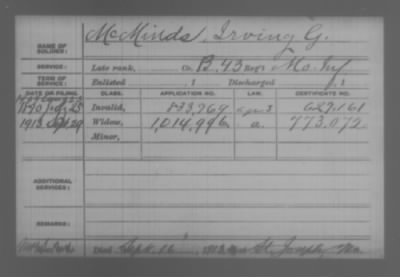 NAME OF SOLDIER: McMinds, Irving G.
SERVICE: Late rank, Co. B. 43 Reg't Mo. Inf
TERM OF SERVICE: Enlisted 1 Discharged 1
DATE OF FILING. CLASS. APPLICATION NO. LAW. CERTIFICATE NO.
1890 July 28 Invalid, 833,769 629.161
1913 Sept 29 Widow, 1,014,996 a. 773.072
Minor,
ADDITIONAL SERVICES:
REMARKS:
Died Sept. 16 1913 St. Joseph, Mo